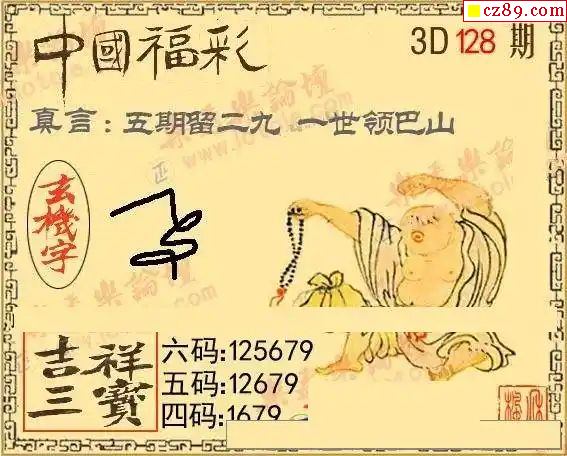 cz89.com
中國福彩
3D 128 期
真言:五期留二九 一世领巴山
玄機字
吉祥三寶
六码:125679
五码:12679
四码:1679